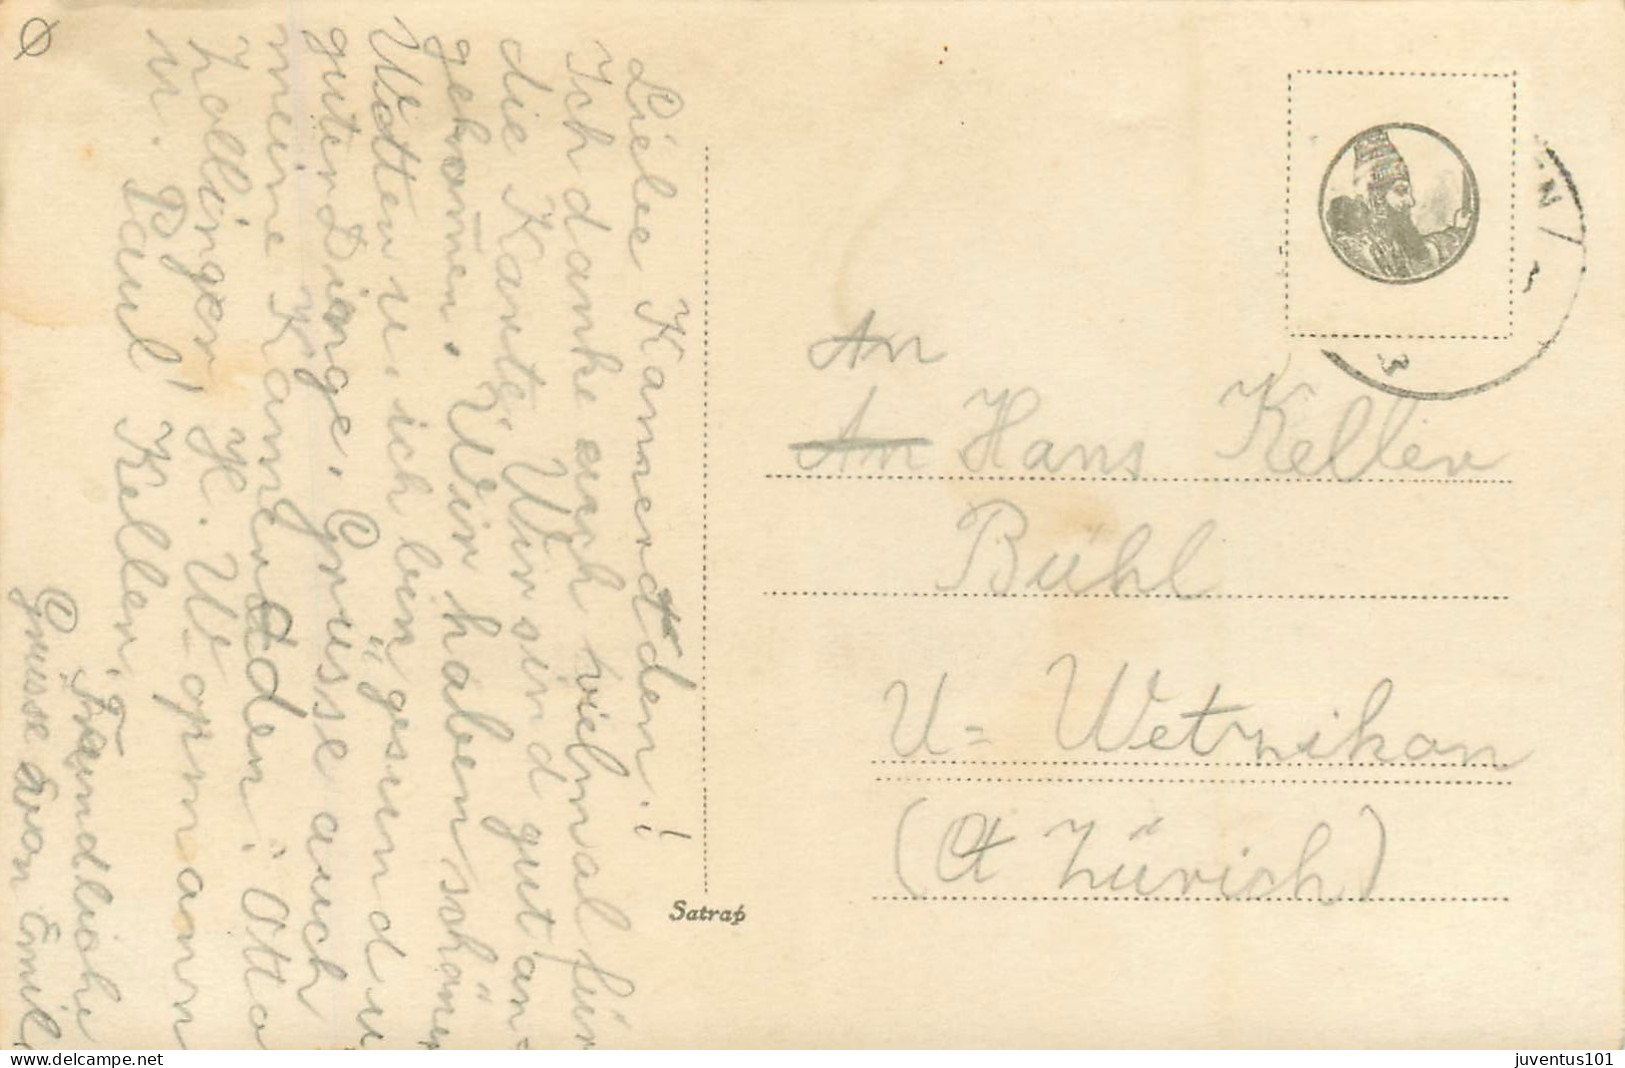 Liebe Kamerdden!
Ich danke euch vielmal für
die Karte, Wir sind gut an-
gekomen. Wir haben sshöner
Wetter u. ich bin gesund u
guter Dinge. Grüsse auch
meine Kameraden: Otto
Zollinger, H. Wopmann
u. Paul Keller.
Freundliche
Grüsse von Emil
An
An Hans Keller
Bühl
U= Wetzikon
(Ct Zürich)
Satrap
3
juventus101